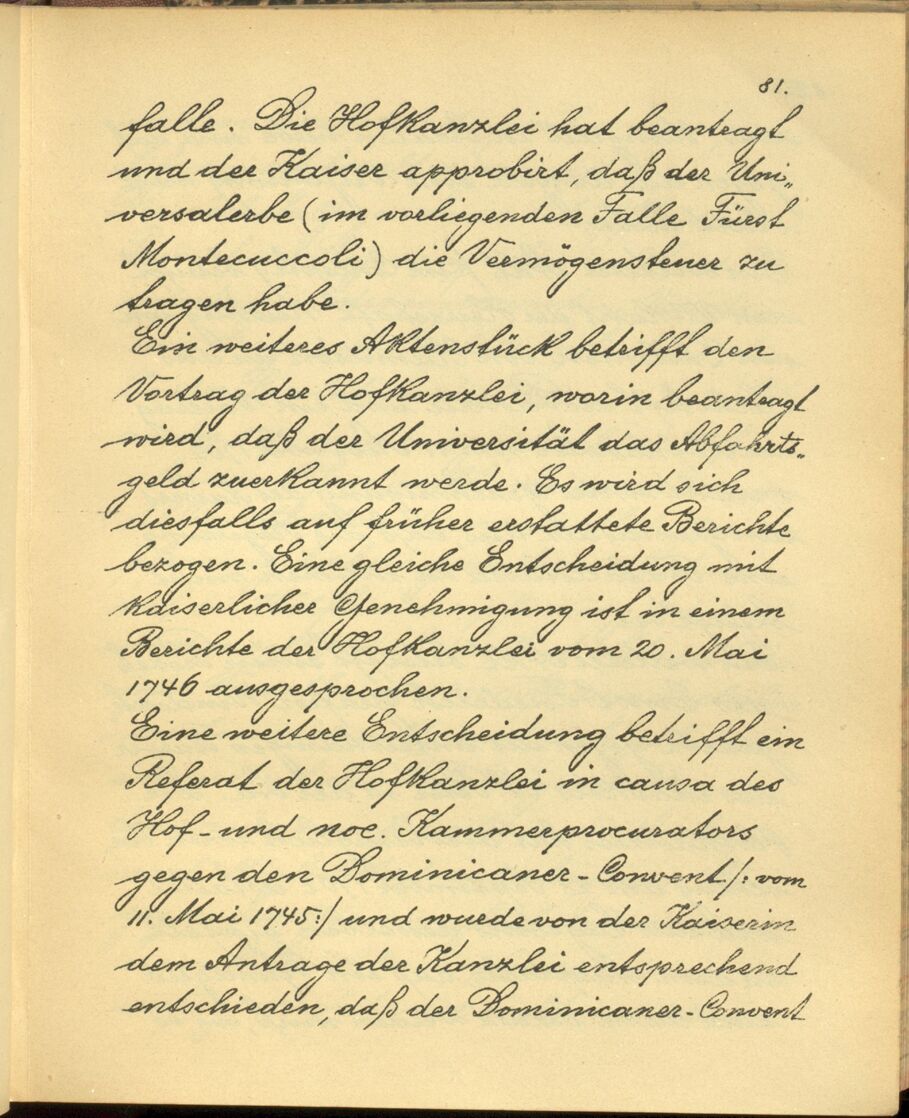 81.
falle. Die Hofkanzlei hat beantragt
und der Kaiser approbirt, daß der Uni„
versalerbe (im vorliegenden Falle Fürst
Montecuccoli) die Vermögensteuer zu
tragen habe.
Ein weiteres Aktenstück betrifft den
Vortrag der Hofkanzlei, worin beantragt
wird, daß der Universität das Abfahrts„
geld zuerkannt werde. Es wird sich
diesfalls auf früher erstattete Berichte
bezogen. Eine gleiche Entscheidung mit
kaiserlicher Genehmigung ist in einem
Berichte der Hofkanzlei vom 20. Mai
1746 ausgesprochen.
Eine weitere Entscheidung betrifft ein
Referat der Hofkanzlei in causa des
Hof- und noe. Kammerprocurators
gegen den Dominicaner-Convent /: vom
11. Mai 1745:/ und wurde von der Kaiserin
dem Antrage der Kanzlei entsprechend
entschieden, daß der Dominicaner-Convent